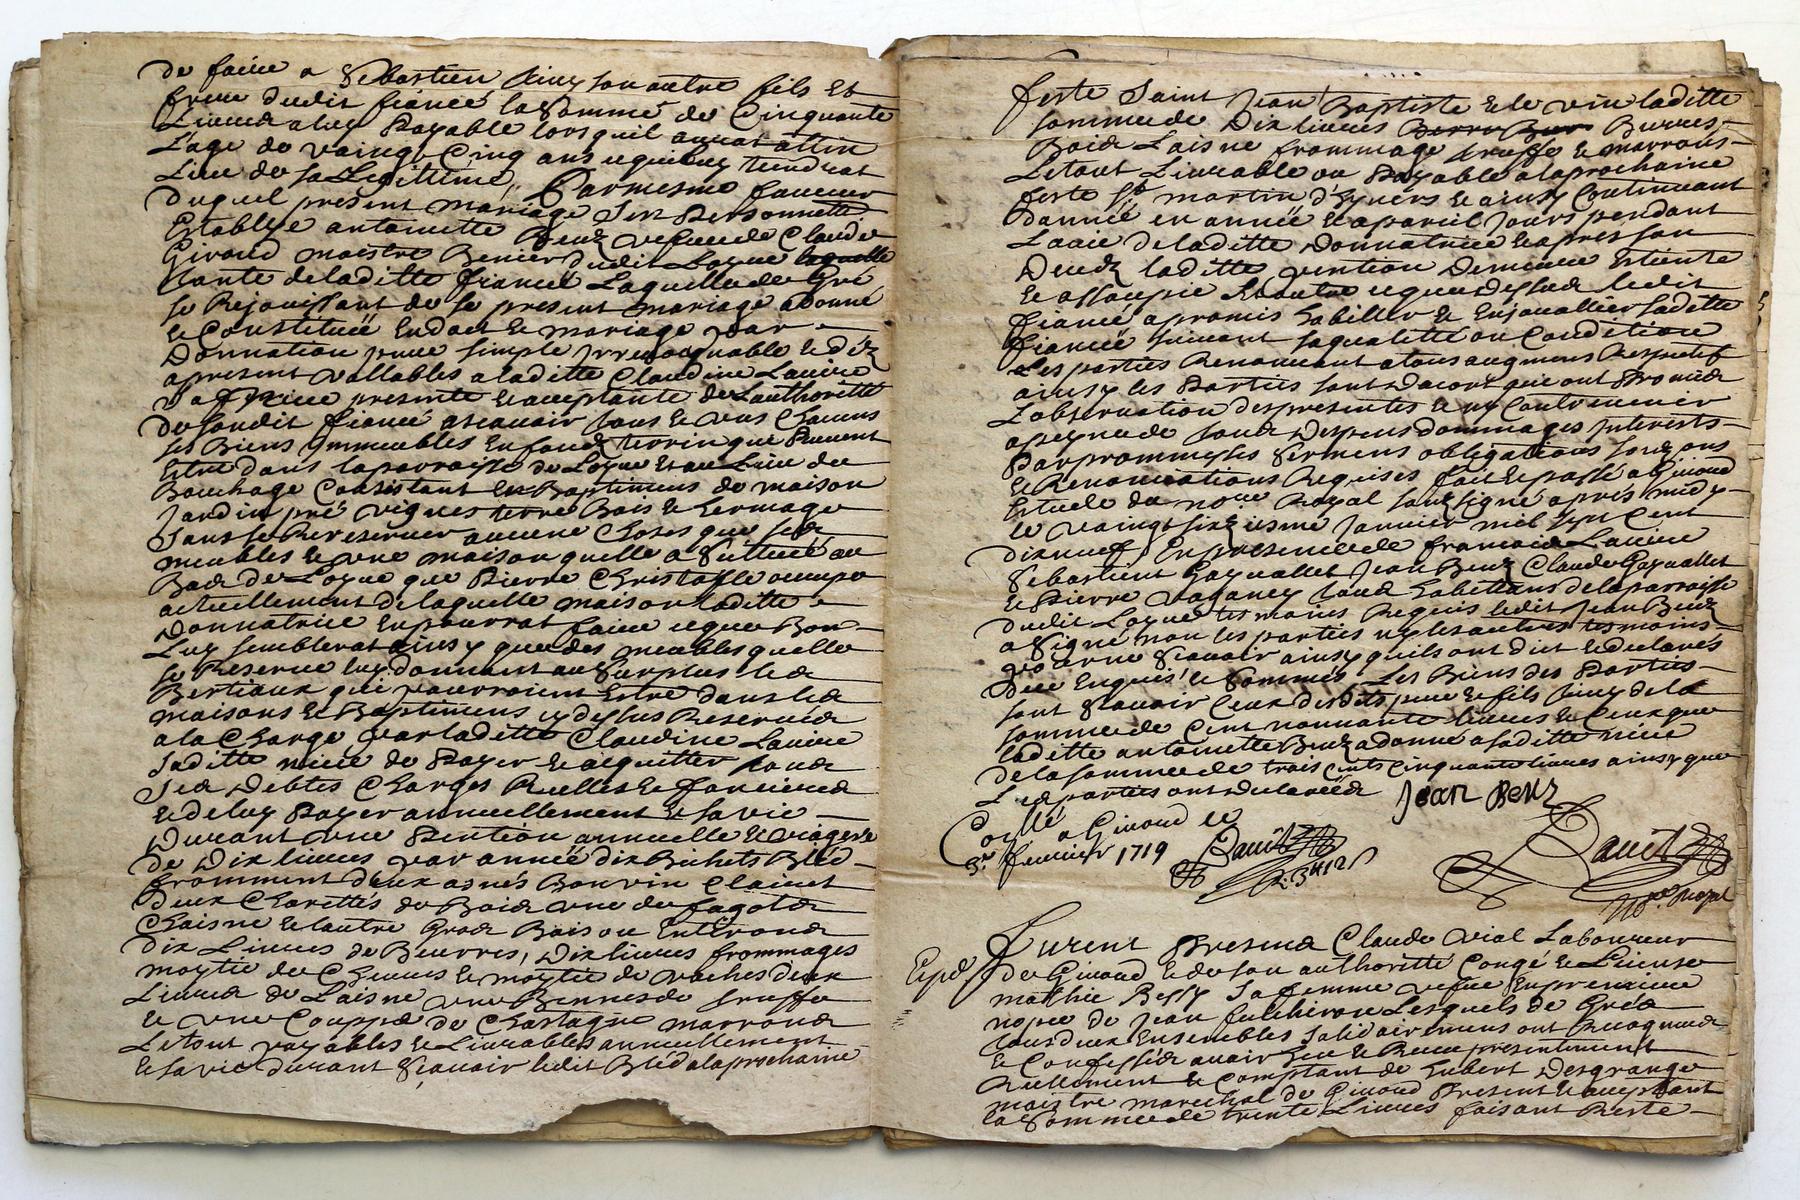 de faire a Sebastien Finy son autre fils Et
frere dudit fiancé la Somme de Cinquante
Livres a luy Payable lors quil aurat attin
L'age de vaingt Cinq ans ce quy luy tiendrat
Lieu de sa Legittime, Parmesme faveur
duquel present mariage s'en Personnelle
Establye antoinette Benz vefue de Claude
Giroud maistre dudit Loyne laquelle
tante de laditte fiancée Laquelle de Gré
se Rejouissant de se present mariage a donné
et Constitué En dot de mariage par
Donnation pure simple jrrevocquable et déz
apresent vallables a laditte Claudine Laurre
sa Niece presente et acceptante de Lauthorité
de sondit fiancé a scavoir tous et uns Chacuns
ses Biens jmmeubles En fond terrin que Peuvent
Estre dans la parroisse de Loyne Et au Lieu du
Bouchage Consistant En Baptimens de maison
Jardin pré vignes terre Bois et hermage
sans se Rereserver aucune Choses que ses
meubles et une maison quelle a Scittuée au
Bois de Loyne que Pierre Christofle occupe
actuellement de laquelle maison laditte
Donnatrice En pourrat faire ce que Bon
Luy semblerat ainsy que des meubles quelle
se Reserve luy donnant au Surplus les
Bestiaux qui pourroient Estre dans les
maisons et Baptimens cy dessus Reservés
a la Charge par laditte Claudine Laurre
saditte niece de Payer et acquitter tous
ses Debtes Charges Reelles et foncieres
et de luy Payer annuellement et sa vie
Durant une Pention annuelle et viagere
de Dix livres par année dix Bichets Bled
fromment deux asnés Bon vin Clairet
deux Charettés de Bois une de fagots
Chaisne et lautre Gros Bois ou Entirons
dix Livres de Beurres, Dix livres frommages
moytié de Chevres et moytié de vaches deux
Livres de Laisne une Bennes de truffe
et une Couppes de Chastagne marrons
Le tout payables et Livrables annuellement
et sa vie durant Sçavoir ledit Bled a la prochaine
feste Saint Jean Baptiste et le vin laditte
somme de Dix livres Burres
Bois Laisne frommage truffe et marrons
Le tout Livrable ou Payable a la prochaine
feste St martin d'hyvers et ainsy Continuant
dannée en année et a pareil Jours pendant
La vie de laditte Donnatrice et apres son
Deceds laditte pention Demeure Esteinte
et assoupie Et outre ce que dessus ledit
fiancé a promis habiller et Enjouallier saditte
fiancée suivant sa qualitté ou Condition
et les parties Renoncent a tous augmens Respectif
ainsy les Parties sont dacort quy ont Promis
L'observation des presentes et ny Contrevenir
a peyne de tous Despens dommages jnterests
Par prommesses Sermens obligations
et Renonciations Requises fait et passé a Givord
Estude du nore Royal soussigné apres midy
le vaingt sixiesme Janvier mil sept Cent
dixneuf, En presence de francois Laurre
Sebastient Gayvallet Jean Benz Claude Gayvallet
et Pierre Vaganey tous habittans de la parroisse
dudit Loyne tesmoins Requis ledit Jean Benz
a Signé non les parties ny les autres tesmoins
pour ne Scavoir ainsy quils ont dict et declarés
Deue Enquis et Sommés, Les Biens des Parties
sont Scavoir Ceux desdits pere et fils Finy de la
somme de Cent nonnante livres et Ceux que
laditte antoinette Benz a donné a saditte niece
de la somme de trois cents Cinquante livres ainsy que
Les parties ont declarées Jean Benz
Collé a Givord le
3e fevrier 1719
Nore Royal
Furent Presens Claude Vial Laboureur
Expé
de Givord et de son authorité Congé et License
mathie Bessy sa femme vefue En premiere
nopce de Jean fulchiron Lesquels de Grés
tous deux Ensembles Solidairement ont Recognus
et Confessés avoir heu et Receu presentement
Reellement et Comptant de hubert Desgrange
maistre marechal de Givord Present et acceptant
la Somme de trente Livres faisant Reste